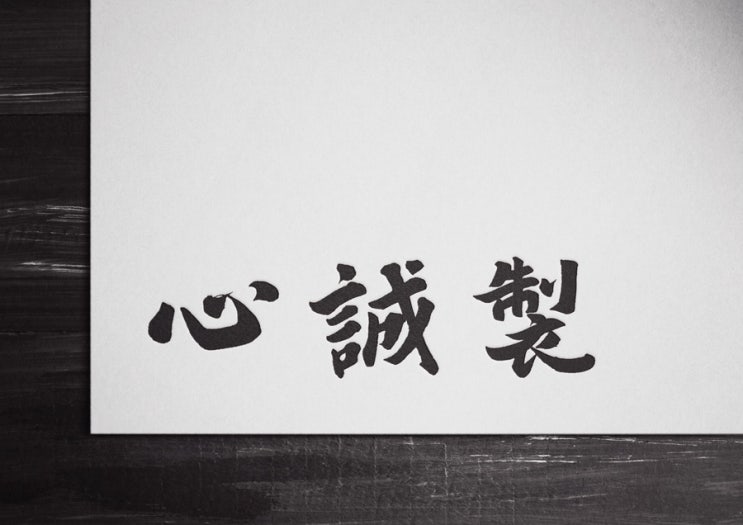 心誠製